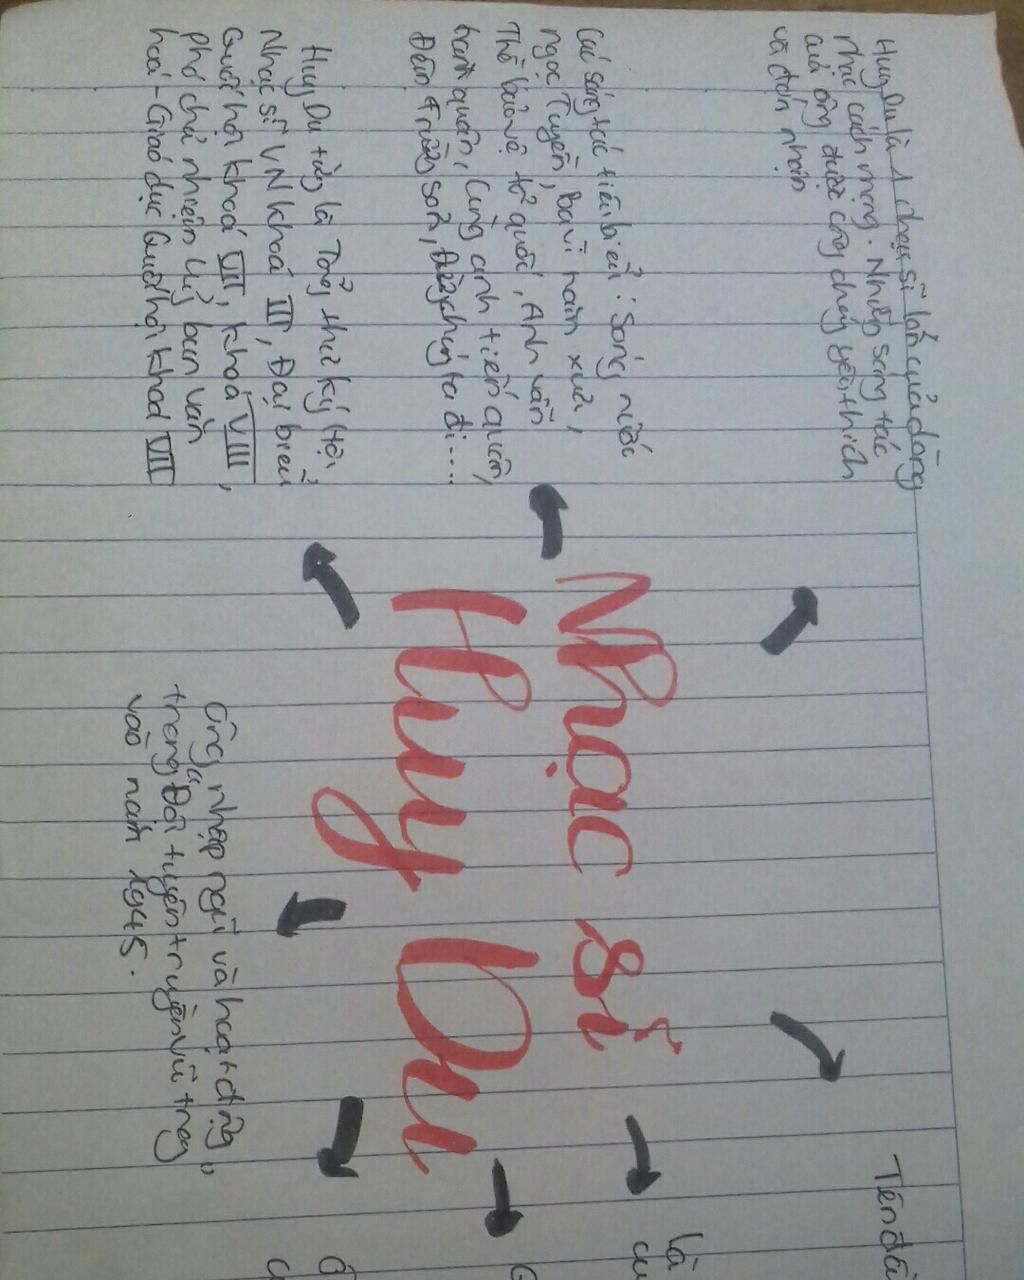 Huy Du là 1 nhạc sĩ lớn của dòng
nhạc cách mạng. Những sáng tác
của ông được công chúng yêu thích
và đón nhận
Các sáng tác tiêu biểu: Sóng nước
ngọc Tuyền, Ba Vì năm xưa,
Thề bảo vệ tổ quốc, Anh vẫn
hành quân, Cùng anh tiến quân,
Đêm Trường Sơn, Đường chúng ta đi....
Huy Du từng là Tổng thư ký Hội
Nhạc sĩ VN khoá III, Đại biểu
Quốc hội khoá VII, khoá VIII,
phó chủ nhiệm Uỷ ban Văn
hoá - Giáo dục Quốc hội khoá VII
Nhạc sĩ
Huy Du
Tên
là
Ông nhập ngũ và hoạt động
trong "Đội tuyên truyền vũ trang"
vào năm 1945.